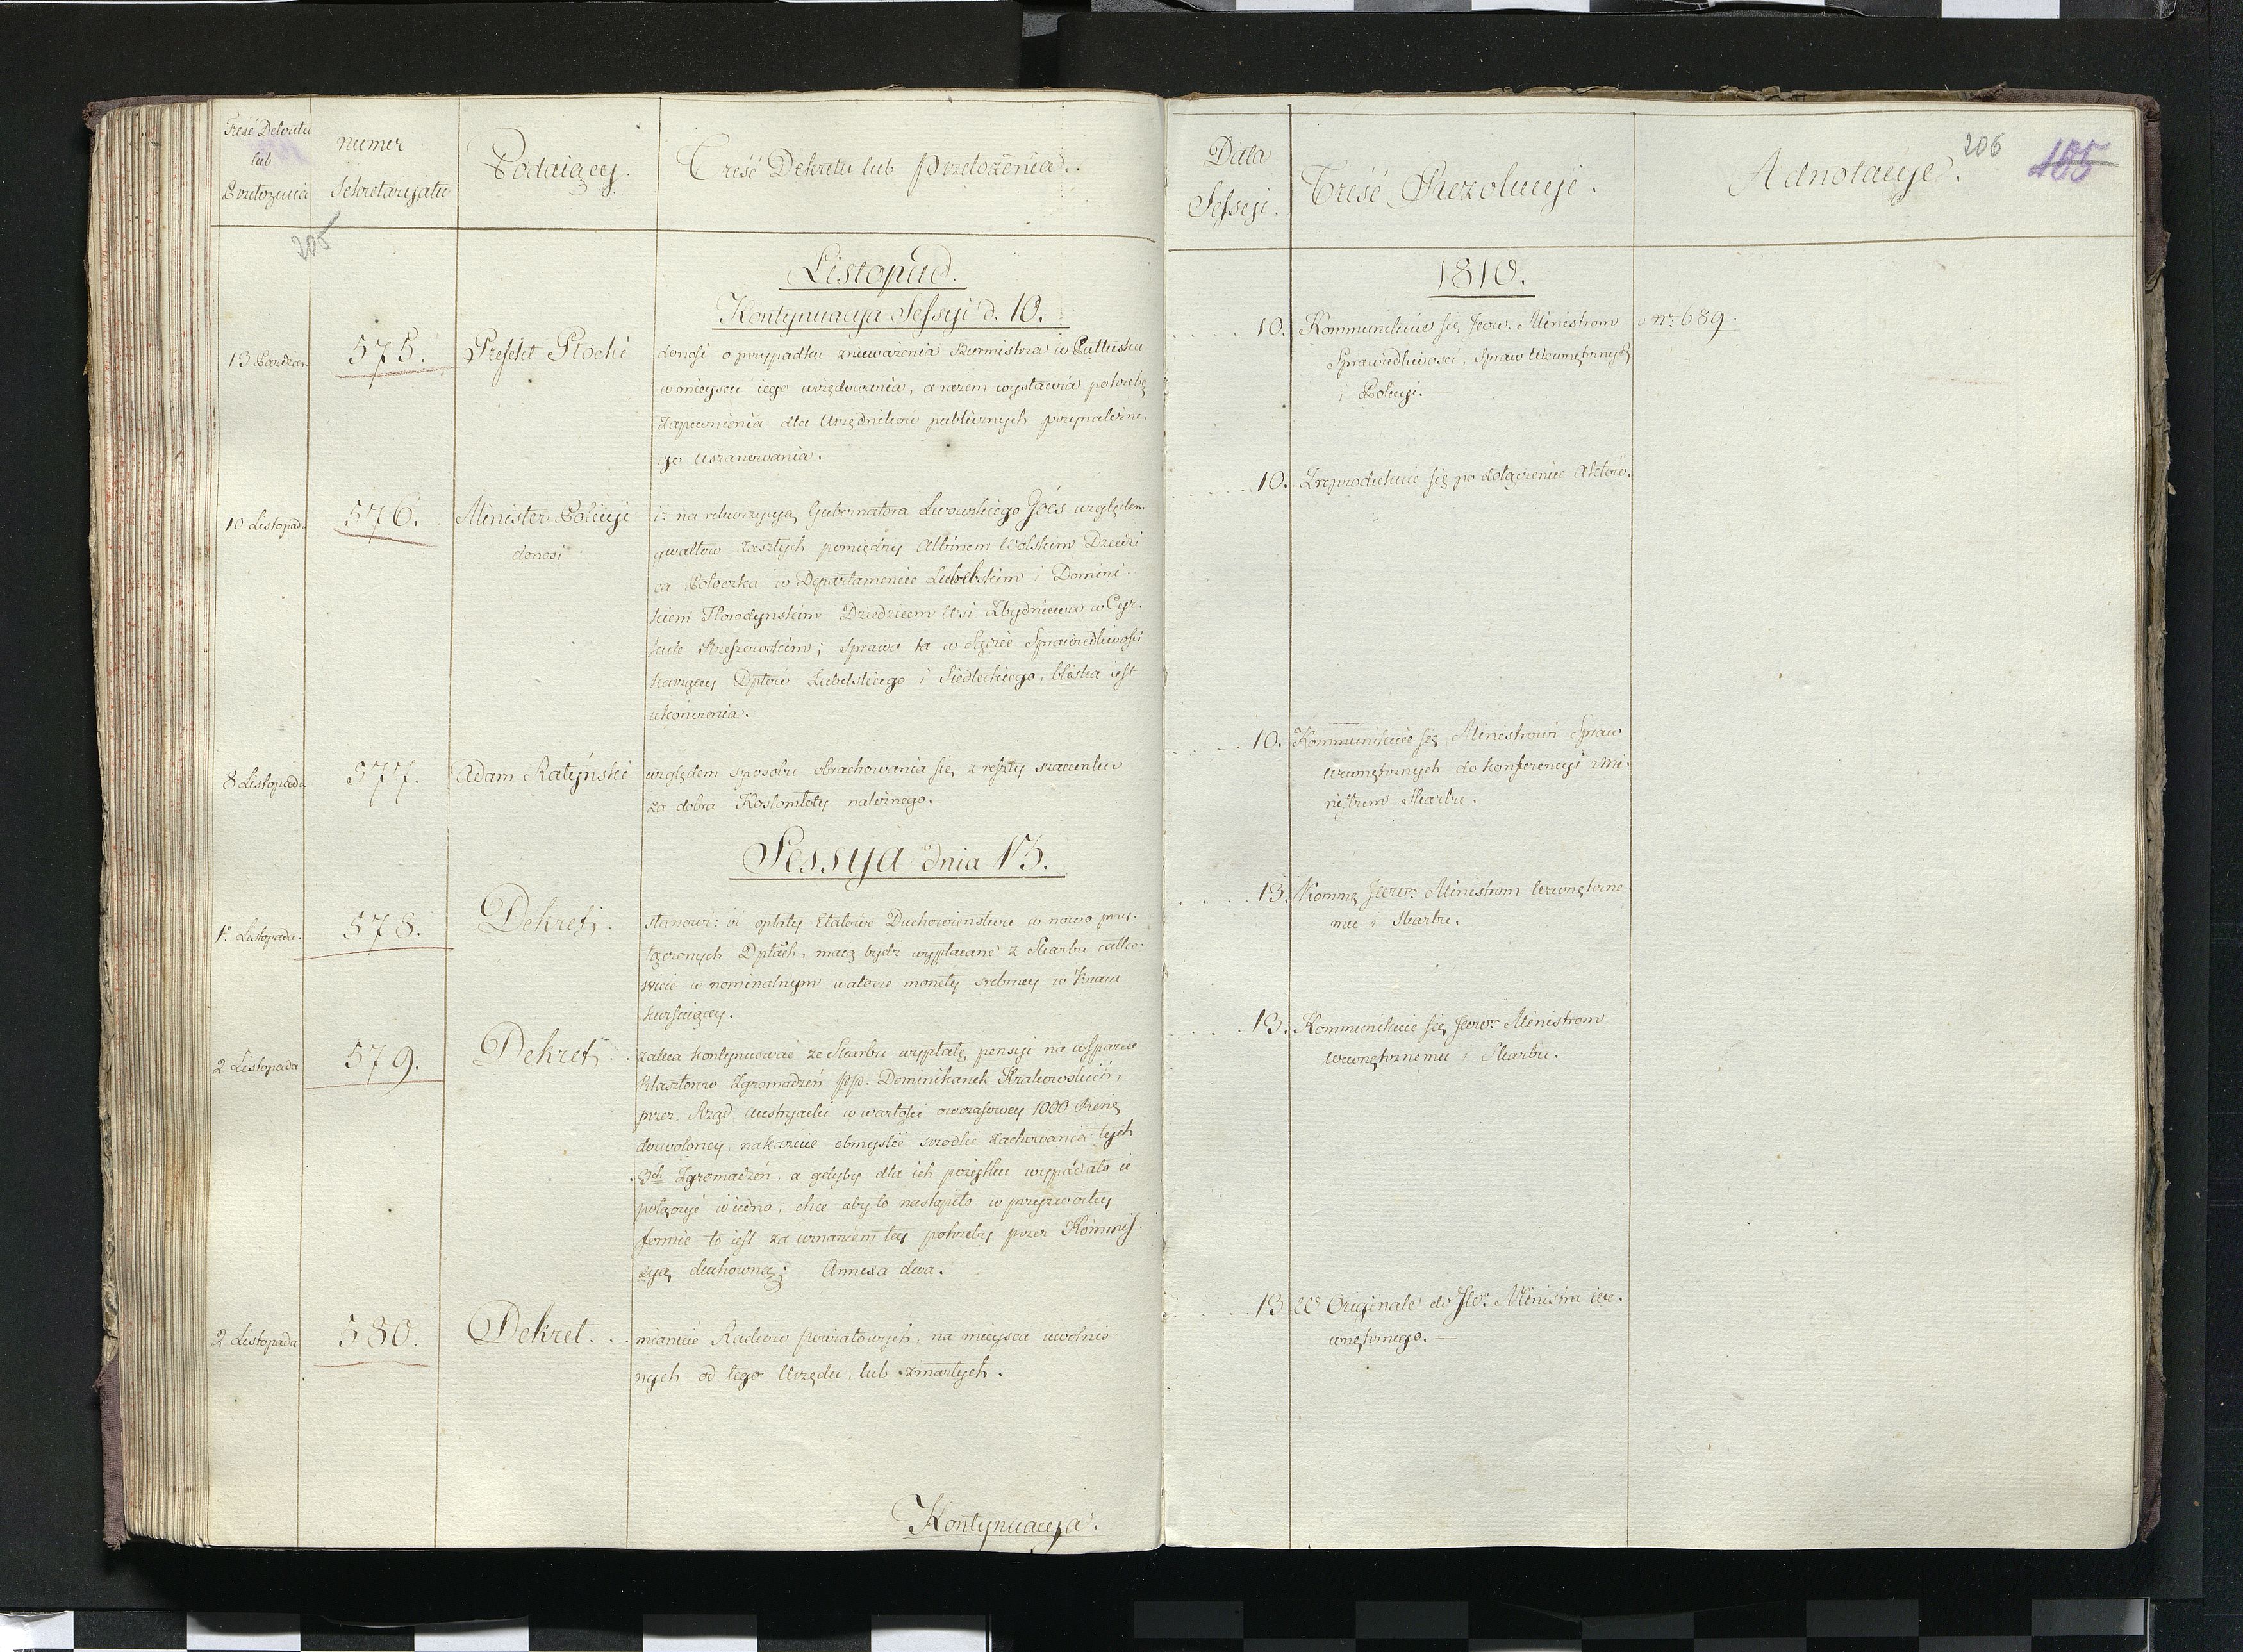 Treść Dekretu
lub
Przełożenia
numer
Sekretaryjatu
Podaiący.
Treść Dekretu lub Przełożenia.
205
Listopad.
Kontynuacya Sessyi d. 10.
13 Paździer
575.
Prefekt Płocki
donosi o przypadku znieważenia Burmistrza w Pułtusku
w mieyscu iego urzędowania, a razem wystawia potrzebę
zapewnienia dla Urzędników publicznych przynależne-
go uszanowania.
10 Listopad.
576.
Minister Policyi
donosi
iż na rekwizycyą Gubernatora Lwowskiego Göes względem
gwałtow zaszłych pomiędzy Albinem Wolskim Dziedzi
ca Potoczka w Departamencie Lubelskim i Domini-
kiem Horodynskim Dziedzicem Wsi Zbydniewa w Cyr-
kule Rzeszowskim; sprawa ta w Sądzie Sprawiedliwości
karzącey Dptow Lubelskiego i Siedleckiego, bliska iest
ukończenia.
8 Listopada
577.
Adam Ratyński
względem sposobu obrachowania się z reszty szacunku
za dobra Kostomłoty należnego.
Sessya dnia 13.
1o Listopada.
578.
Dekret.
stanowi: iż opłaty Etatowe Duchowieństwu w nowo przy-
łączonych Dptach, maią bydź wypłacane z Skarbu całko-
wicie w nominalnym walorze monety srebrney w Kraiu
kursuiącey.
2 Listopada
579.
Dekret
zaleca kontynuować ze Skarbu wypłatę pensyi na wsparcie
Klasztorow Zgromadzeń pp. Dominikanek Krakowskich,
przez Rząd Austryacki w wartości owczasowey 1000
dozwoloney, nakazuie obmyslić srodki zachowania tych
3ch Zgromadzeń, a gdyby dla ich pożytku wypadało ie
połączyć w iedno; chce aby to nastąpiło w przyzwoitey
formie to iest za uznaniem tey potrzeby przez Kommis-
syą duchowną; Annexa dwa.
2 Listopada
580.
Dekret.
mianuie Radcow powiatowych, na mieysca uwolnio
nych od tego Urzędu, lub zmarłych.
Kontynuacya.
Data
Sessyi.
Treść Rezolucyi.
Adnotacye.
206
105
1810.
10.
Kommunikuie się Jww. Ministrom
Sprawiedliwosci, Spraw Wewnętrznych
i Policyi.
nr. 689.
10.
Zreprodukuie się po dołączeniu Aktów.
10.
Kommunikuie się Ministrowi Spraw
wewnętrznych do konferencyi z Mi-
nistrem Skarbu.
13.
Komme Jww. Ministrom Wewnętrzne
mu i Skarbu.
13.
Kommunikuie się Jww. Ministrom
Wewnętrznemu i Skarbu.
13
W Originale do JW. Ministra We-
wnętrznego.